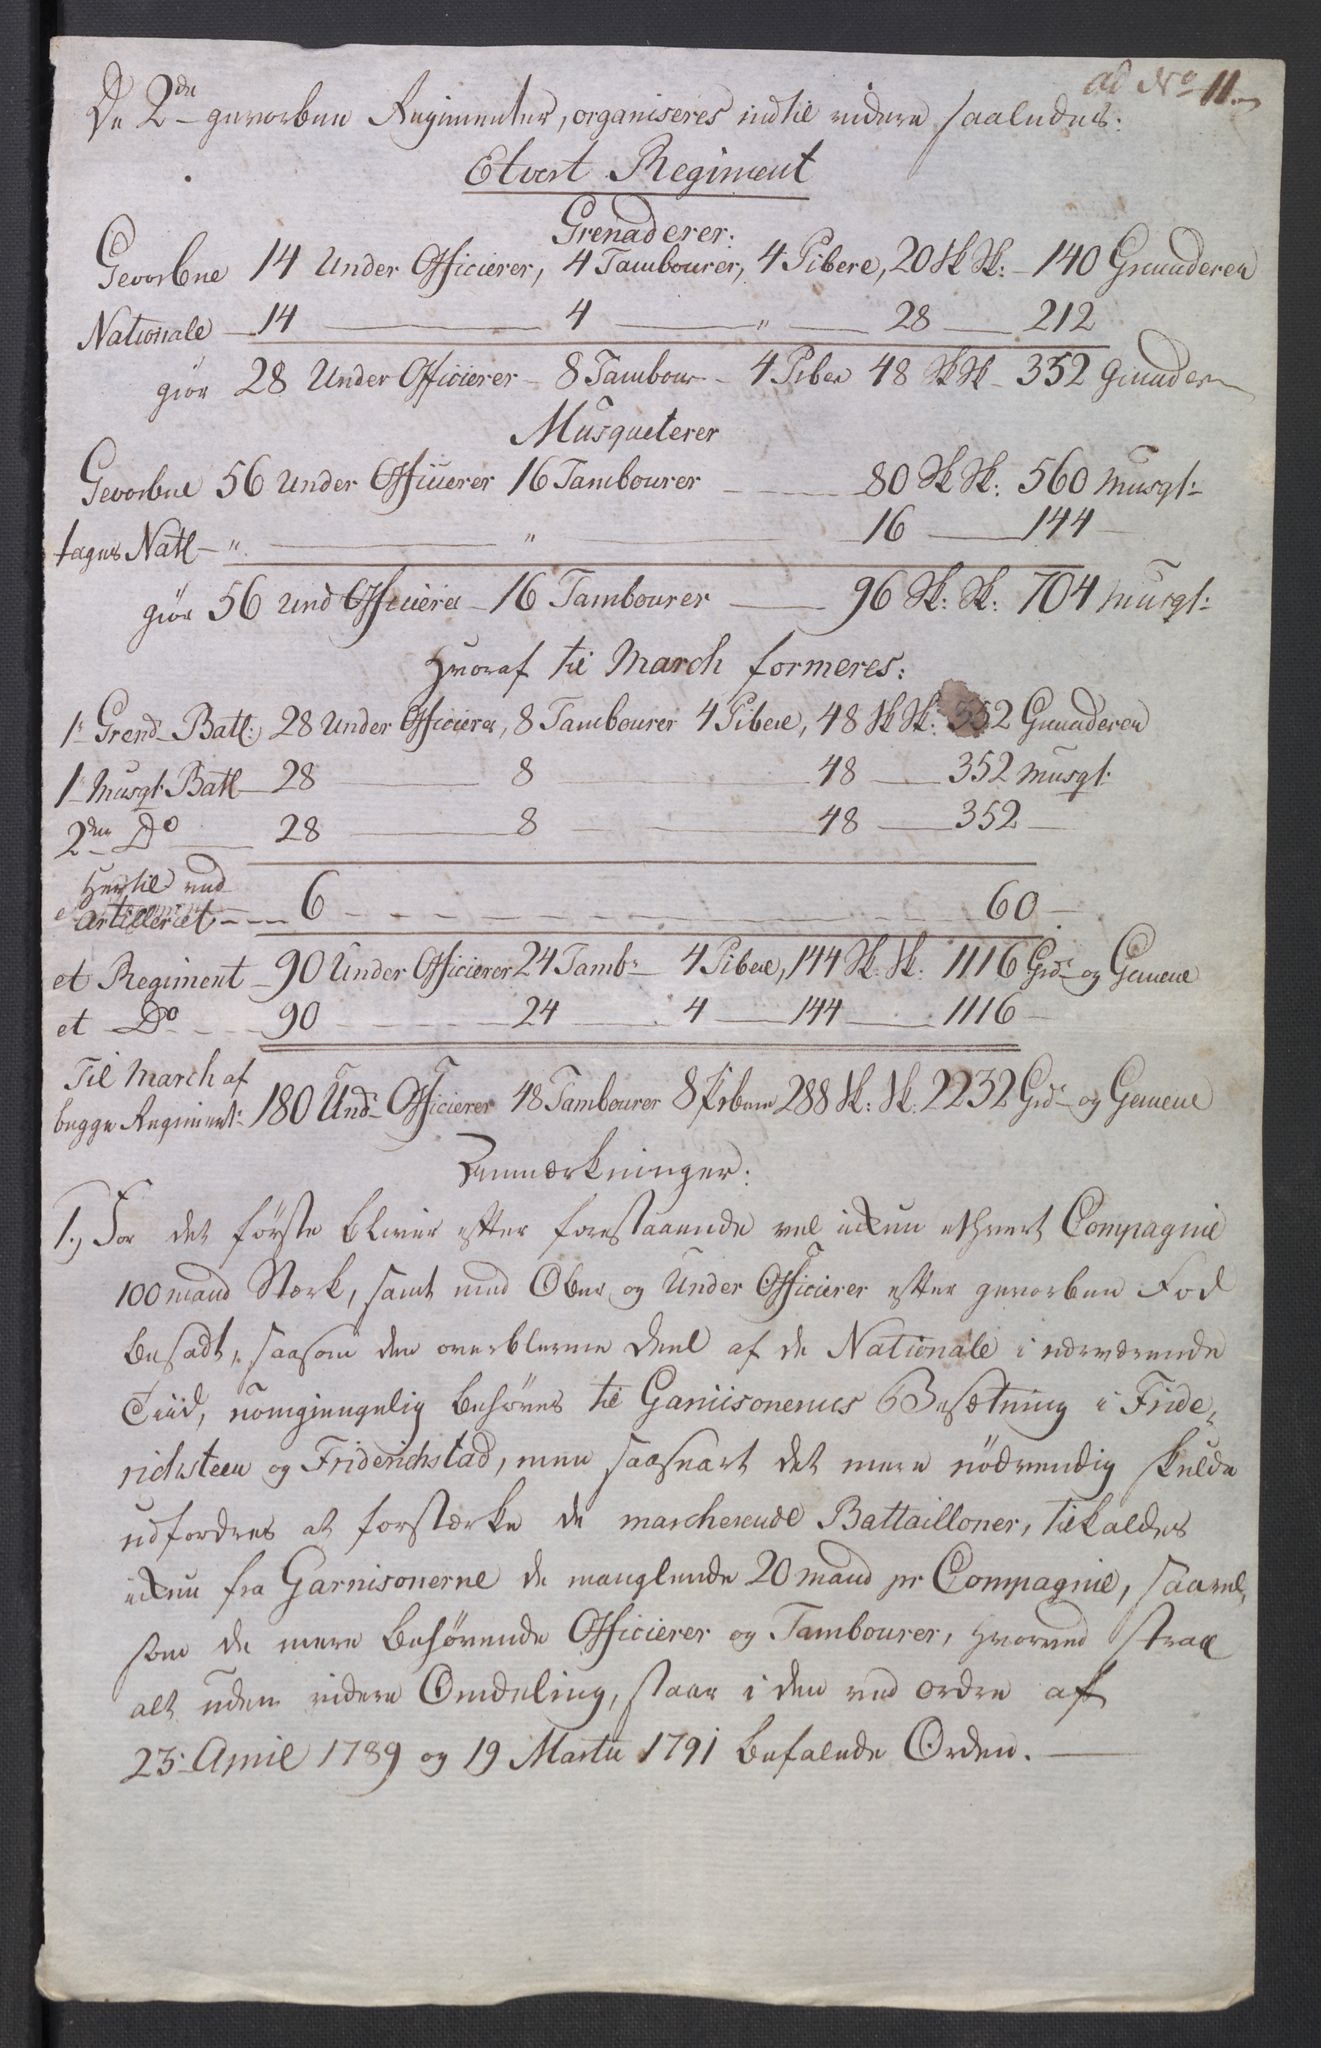 ad No 11.
De 2de gevorbne Regimenter, organiseres indtil videre saaledes:
Etvert Regiment
Grenaderer:
Gevorbne 14 Under Officierer, 4 Tambourer, 4 Pibere, 20 Sk Sk: 140 Grenaderer
Nationale 14 — 4 — " — 28 — 212
giør 28 Under Officierer 8 Tambour 4 Piber 48 Sk Sk 352 Grenader
Musqueterer
Gevorbne 56 Under Officierer 16 Tambourer — 80 Sk Sk: 560 Musqt:
tages Natl — " — " — 16 — 144
giør 56 Und Officierer 16 Tambourer — 96 Sk: Sk: 704 Musqt:
Hvoraf til March formeres:
1 Grend Batl: 28 Under Officierer, 8 Tambourer 4 Pibere, 48 Sk Sk: 352 Grenaderer
1 Musqt: Batl 28 — 8 — 48 — 352 Musqt:
2den Do — 28 — 8 — 48 — 352 —
Hertil ved
Artilleriet — 6 — 60 —
et Regiment 90 Under Officierer 24 Tamb: 4 Pibere, 144 Sk: Sk: 1116 Grd: og Gemene
et Do — 90 — 24 — 4 — 144 — 1116 —
Til March af
begge Regiment: 180 Und: Officierer 48 Tambourer 8 Pibere 288 Sk: Sk: 2232 Grd: og Gemene
Anmærkninger:
1.) For det første bliver efter forestaaende vel ikkun ethvert Compagnie
100 mand Stærk, samt med Ober og Under Officierer efter gevorben Fod
besadt, saasom den overblevne Deel af de Nationale i nærværende
Tiid, uomgiengelig behøves til Garnisonernes Besætning i Fride-
richsteen og Friderichstad, men saasnart det mere nödvendig skulde
udfordres at forstærke de marcherende Battailloner, tilkaldes
ikkun fra Garnisonerne de manglende 20 mand pr Compagnie, saavel
som de mere behøvende Officierer og Tambourer, hvorved strax
alt uden videre Omdeling, staar i den ved Ordre af
23 April 1789 og 19 Martii 1791 befalede Orden. —